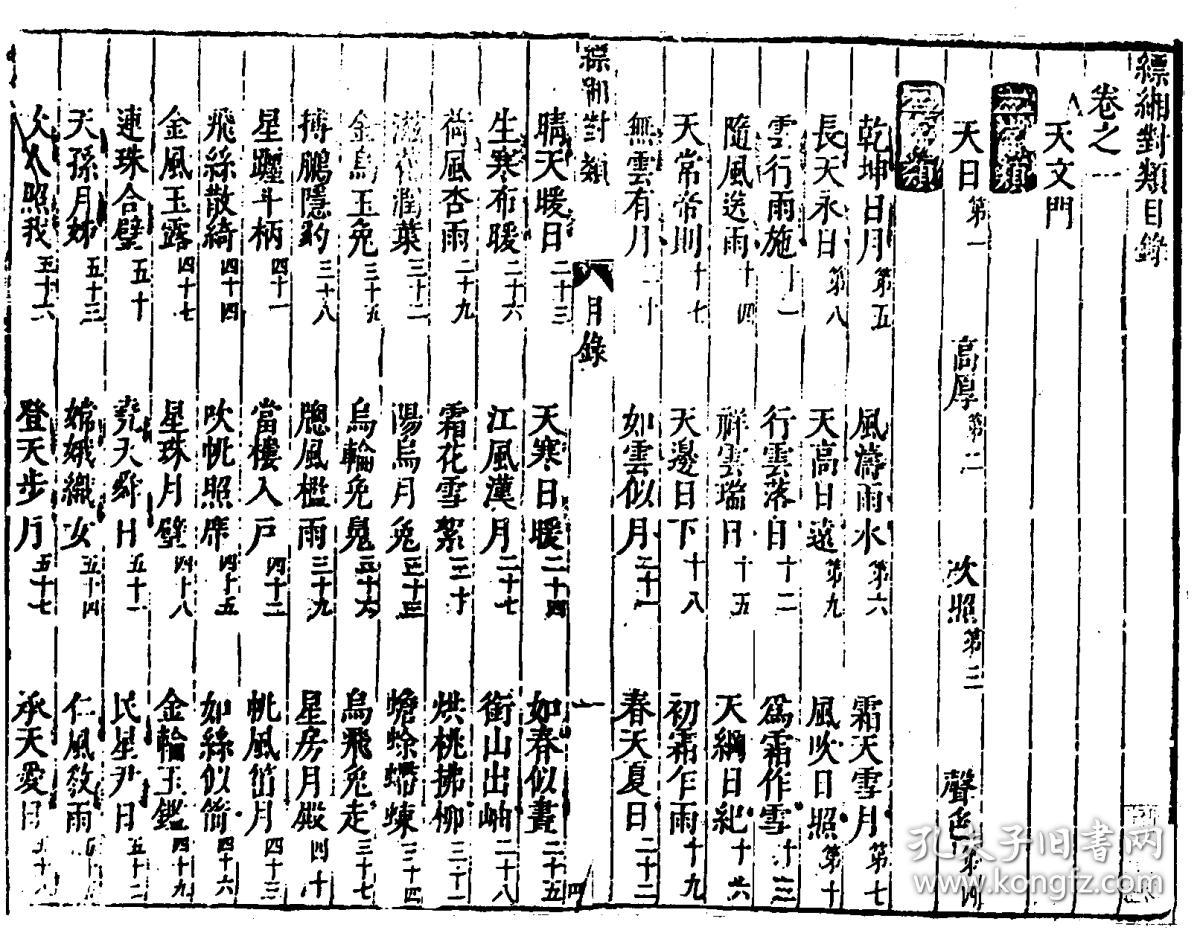 縹緗對類目錄
卷之一
天文門
天日第一 高厚第二 吹照第三 聲色第四
乾坤日月第五 風濤雨水第六 霜天雪月第七
長天永日第八 天高日遠第九 風吹日照第十
雲行雨施十一 行雲落日十二 爲霜作雪十三
隨風送雨十四 祥雲瑞日十五 天綱日紀十六
天常帝則十七 天邊日下十八 初霜乍雨十九
無雲有月二十 如雲似月二十一 春天夏日二十二
縹緗對類 目錄 一
晴天暖日二十三 天寒日暖二十四 如春似晝二十五
生寒布暖二十六 江風漢月二十七 銜山出岫二十八
荷風杏雨二十九 霜花雪絮三十 烘桃拂柳三十一
滋花潤葉三十二 陽烏月兔三十三 蟾蜍螮蝀三十四
金烏玉兔三十五 烏輪兔魄三十六 烏飛兔走三十七
摶鵬隱豹三十八 牕風檻雨三十九 星房月殿四十
星躔斗柄四十一 當樓入戸四十二 帆風笛月四十三
飛絲散綺四十四 吹帆照席四十五 如絲似箭四十六
金風玉露四十七 星珠月璧四十八 金輪玉鑑四十九
連珠合璧五十 堯天舜日五十一 民星尹日五十二
天孫月姊五十三 嫦娥織女五十四 仁風敎雨五十五
照我五十六 登天步月五十七 承天愛日五十八
孔夫子旧书网
www.kongfz.com